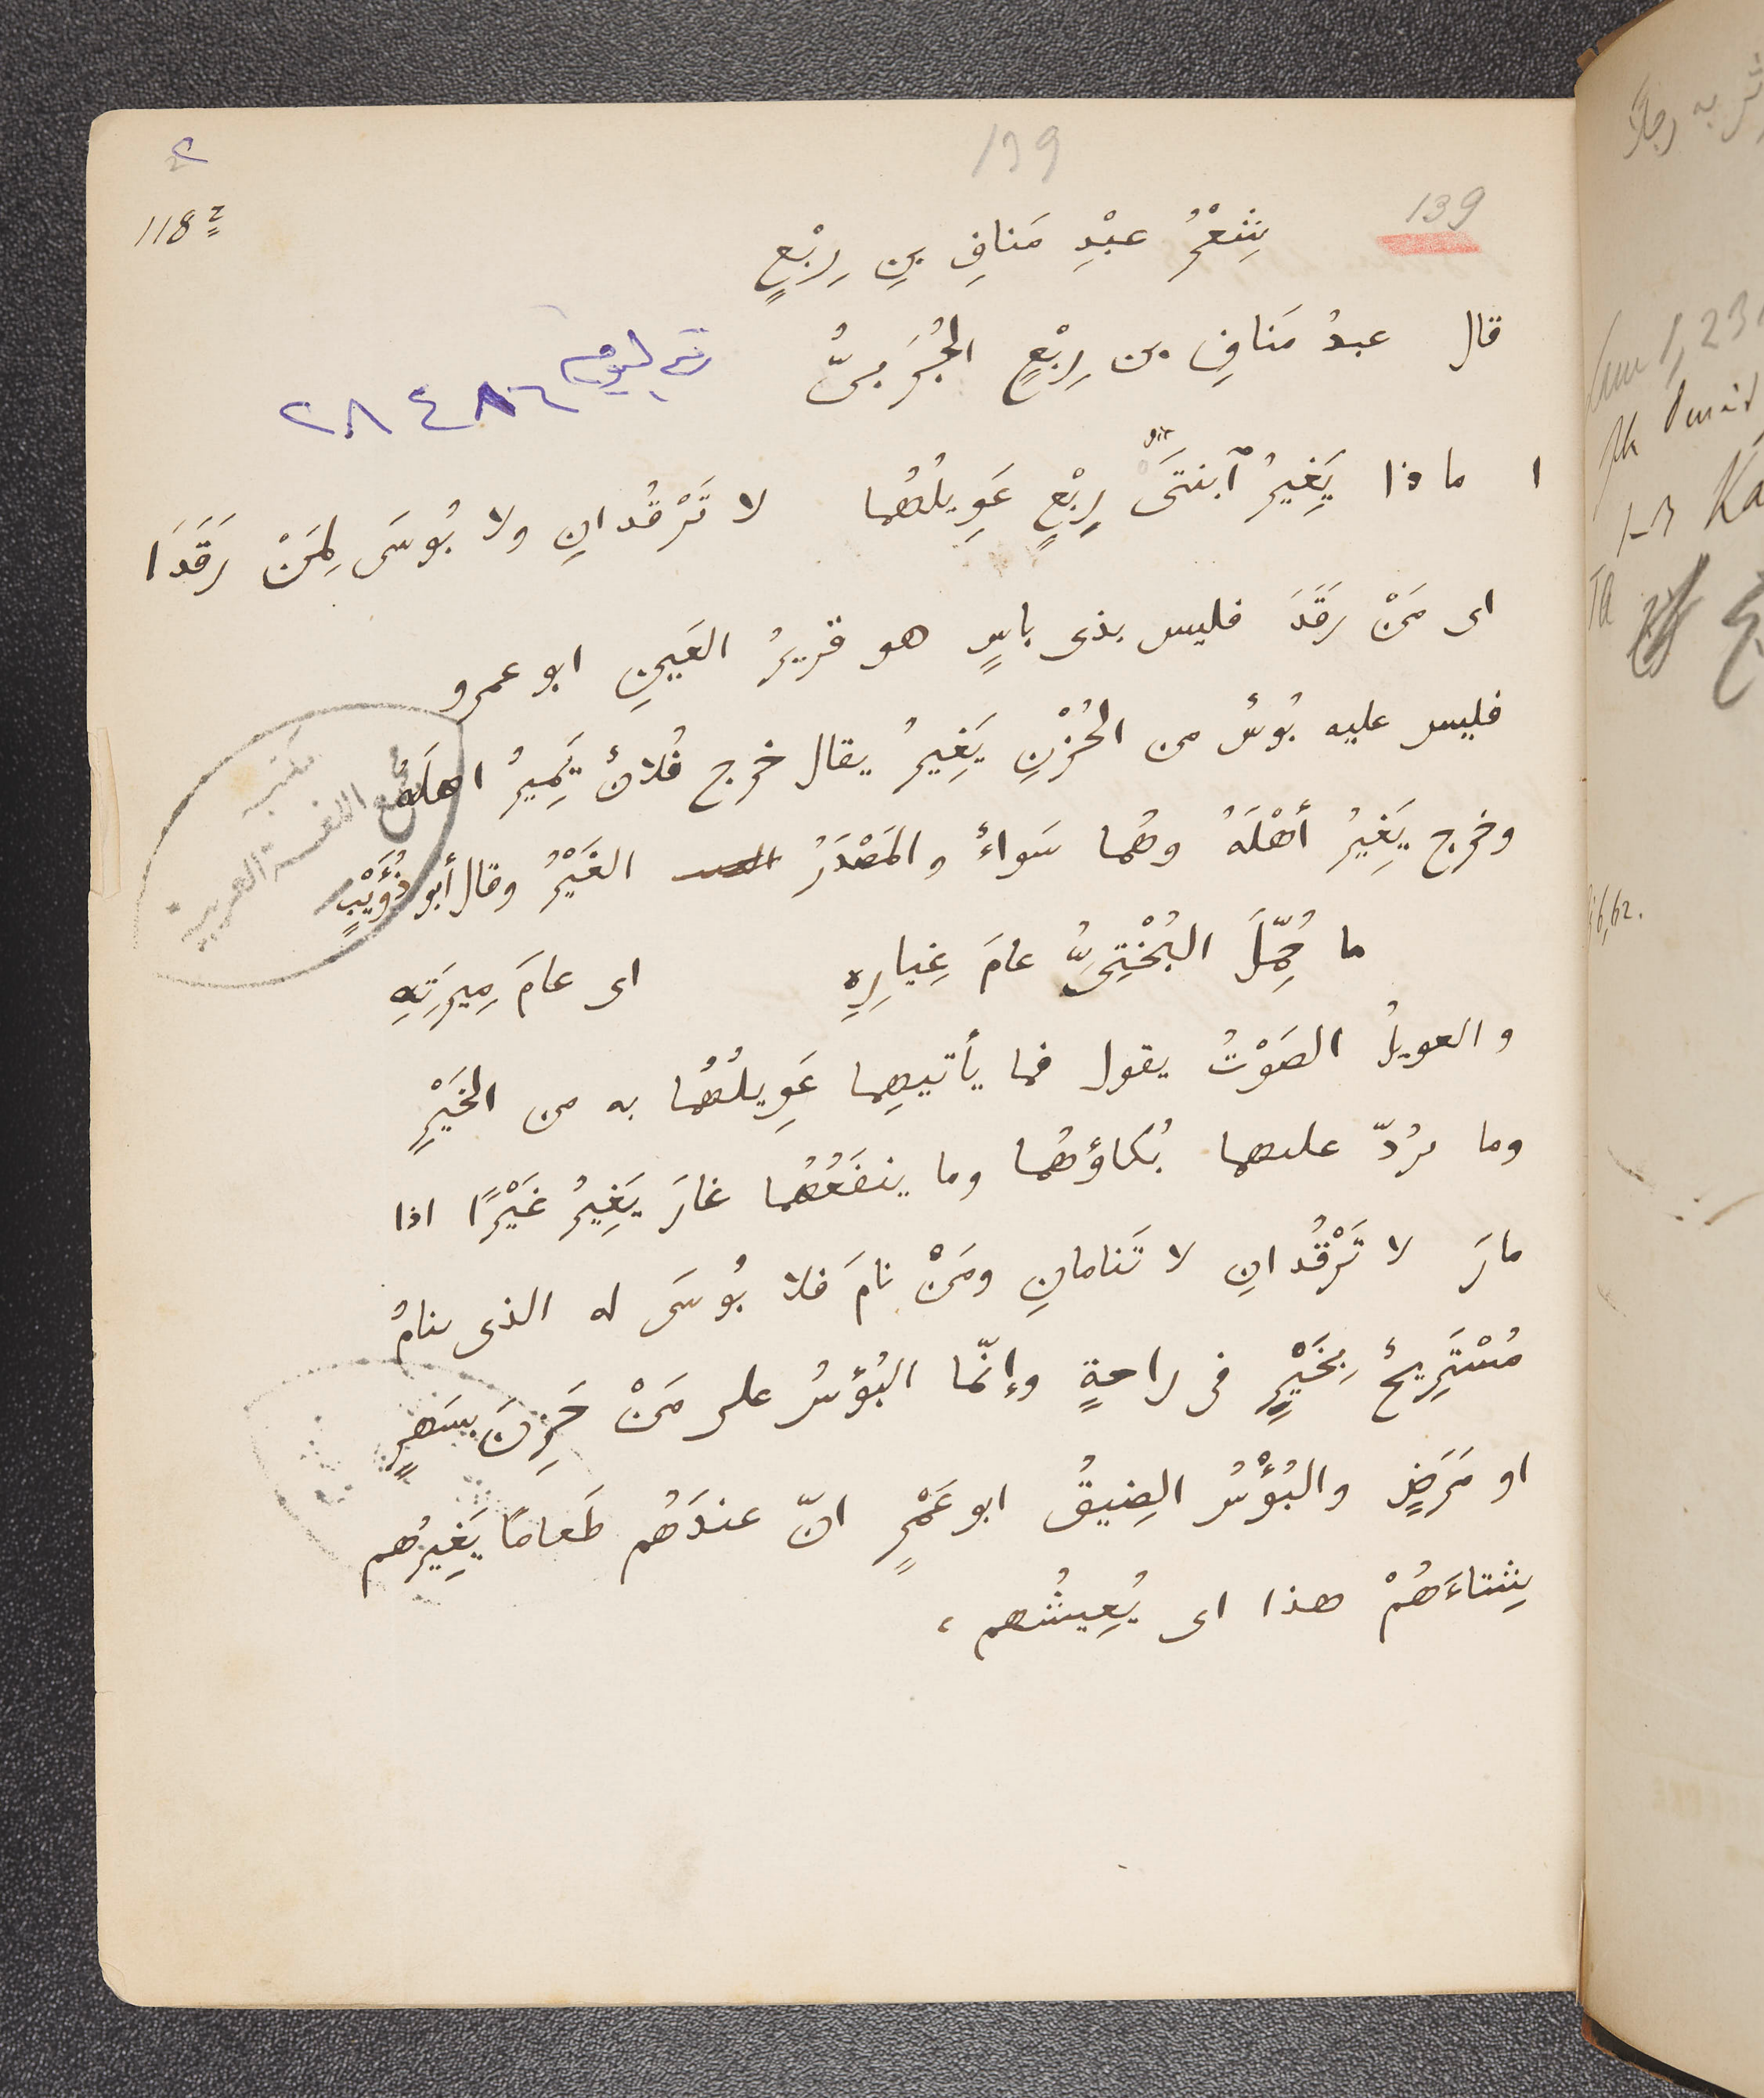 139
139
118
شِعْرُ عبْدِ مَنافِ بنِ رِبْعٍ
قال عبدُ مَنافِ بن رِبْعٍ الجُرَبىُّ
٢٨٤٨٦
١ ماذا يَغِيرُ ٱبنتَىْ رِبْعٍ عَوِيلُهُما لا تَرْقُدانِ ولا بُوسَى لِمَنْ رَقَدَا
اى مَنْ رَقَدَ فليس بذى باسٍ هو قريرُ العَينِ ابو عمرو
فليس عليه بُوسٌ من الحُزْنِ يَغِيرُ يقال خرج فُلانٌ يَمِيرُ اهلَهُ
وخرج يَغِيرُ أهْلَهُ وهُما سَواءٌ والمَصْدَرُ الغَيْرُ وقال أبو ذُؤَيْبٍ
ما حُمِّلَ البُخْتِىُّ عامَ غِيارِهِ اى عامَ مِيرَتِهِ
والعويلُ الصَوْتُ يقول فما يأتيهِما عَوِيلُهُما به من الخَيْرِ
وما يرُدّ عليهما بُكاؤهُما وما ينفَعُهُما غارَ يَغِيرُ غَيْرًا اذا
مارَ لا تَرْقُدانِ لا تَنامانِ ومَنْ نامَ فلا بُوسَى له الذى ينامُ
مُسْتَرِيحٌ بِخَيْرٍ فى راحةٍ وإنّما البُؤسُ على مَنْ حَزِنَ بسَهَرٍ
او مَرَضٍ والبُؤْسُ الضِيقُ ابو عَمْرٍ انّ عندَهُم طَعامًا يَغِيرُهم
شِتاءَهُمْ هذا اى يُعِيشُهم ،
مكتبة
مجمع اللغة العربية